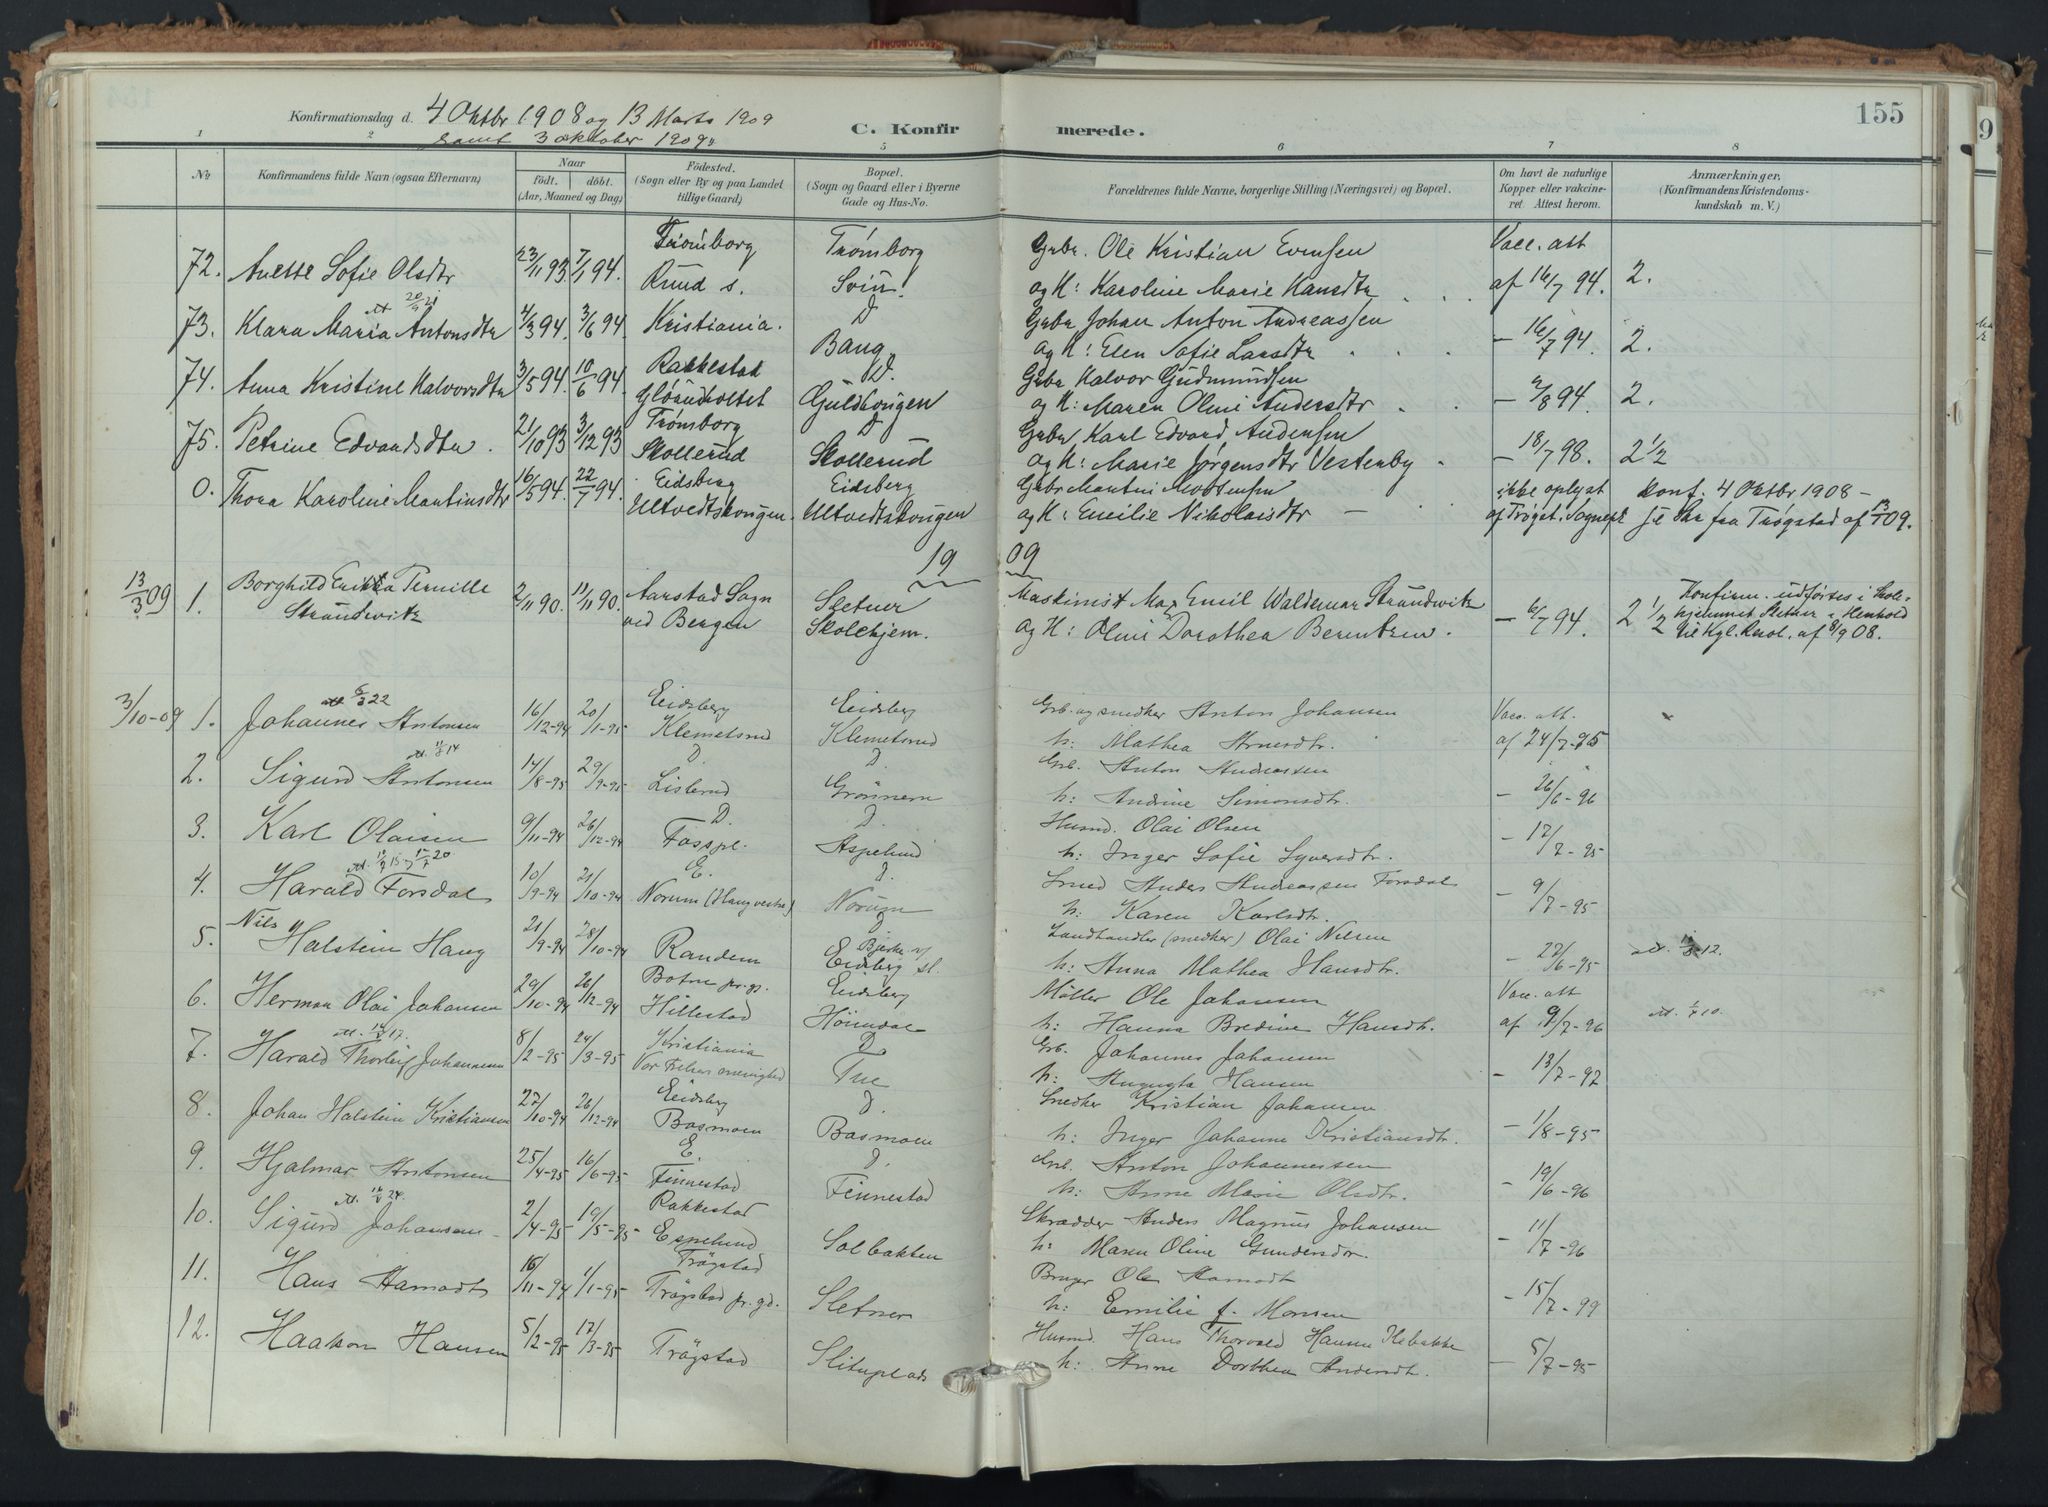 155
Konfirmationsdag d. 4 Oktbr 1908 og 13 Marts 1909
samt 3 oktober 1909
C. Konfirmerede.
1 2 5 6 7 8
No Konfirmandens fulde Navn (ogsaa Efternavn) Naar født. døbt. (Aar, Maaned og Dag) Fødested. (Sogn eller By og paa Landet tillige Gaard) Bopæl. (Sogn og Gaard eller i Byerne Gade og Hus-No. Forældrenes fulde Navne, borgerlige Stilling (Næringsvei) og Bopæl. Om havt de naturlige Kopper eller vakcineret Attest herom. Anmærkninger. (Konfirmandens Kristendomskundskab m. V.)
Trømborg Trømborg Gbr. Ole Kristian Evensen Vacc. att
72. Anette Sofie Olsdtr 23/11 93 7/1 94. Ruud s. Svin. og H: Karoline Marie Hansdtr af 16/7 94. 2.
73. Klara Maria Antonsdtr 4/3 94 3/6 94 Kristiania. D Gbr Johan Anton Andreassen
Bang og H: Elen Sofie Larsdtr - 16/7 94. 2.
74. Anna Kristine Halvorsdtr 3/5 94 10/6 94 Rakkestad D. Gbr Halvor Gudmundsen
Guldhougen og H: Maren Olini Andersdtr - 2/8 94. 2.
75. Petrine Edvardsdtr. 21/10 93 3/12 93 Trømborg D Gbr Karl Edvard Andersen
Skollerud Skollerud og H: Marie Jørgensdtr Vestenby - 18/7 98. 2 1/2
0. Thora Karoline Martinsdtr 16/5 94 22/7 94. Eidsberg Eidsberg Gbr Martin Mortensen ikke oplyst Konf. 4 Oktbr 1908 -
Ultvedtskougen. Ultvedtskougen og H: Emilie Nikolaisdtr af Trøgst. Sognepr fra Trøgstad af 13/1 09.
1909
13/3 09 1. Borghild Pernille Strandwitz 2/11 90. 11/11 90. Aarstad Sogn Sletner Maskinist Max Emil Waldemar Strandwitz Konfirm. udførtes i Skole-
ved Bergen Skolehjem. og H: Olini Dorothea Berentzen. - 6/7 94. 2 1/2 hjemmet Sletner i Henhold
til Kgl. Resol. af 8/9 08.
3/10-09 1. Johannes Antonsen 16/12-94 20/1-95 Eidsberg Eidsberg Grb. og snedker Anton Johansen Vacc. att.
Klemetsrud Klemetsrud h: Mathea Arnesdtr. af 24/7-95
2. Sigurd Antonsen 14/8-95 29/9-95 D. D Grb. Anton Andreassen
Lislerud Grönnern h: Andrine Simonsdtr. - 26/6-96
3. Karl Olaisen 9/11-94 26/12-94 D. D. Husmd. Olai Olsen
Fosspl. Aspelund h: Inger Sofie Syversdtr. - 17/7-95
4. Harald Forsdal 10/9-94 21/10-94 E. D. Smed Anders Andreassen Forsdal
Norum (Haug vestre) Norum h: Karen Karlsdtr. - 9/7-95
5. Nils Halstein Haug 21/9-94 28/10-94 D Landhandler (snedker) Olai Nilsen
Randem Eidsberg st. h: Anna Mathea Hansdtr. - 22/6-95
6. Herman Olai Johansen 29/10-94 26/12-94 Botne pr.gj. Eidsberg Möller Ole Johansen Vacc. att
Hillestad h: Hanna Bredine Hansdtr. af 9/7-96
7. Harald Thorleif Johannesen 8/2-95 24/3-95 Kristiania D Grb. Johannes Johansen
Vor Frelsers menighed Tue h: Augusta Hansen - 13/7-97
8. Johan Halstein Kristiansen 27/10-94 26/12-94 Eidsberg D. Snedker Kristian Johansen
Basmoen Basmoen h: Inger Johanne Kristiansdtr. - 1/8-95
9. Hjalmar Antonsen 25/4-95 16/6-95 E. D. Grb. Anton Johannessen
Finnestad Finnestad h: Anne Marie Olsdtr. - 19/6-96
10. Sigurd Johansen 2/4-95 19/5-95 Rakkestad Skrædder Anders Magnus Johansen
Espelund Solbakken h: Maren Oline Gundersdtr. - 11/7-96
11. Hans Aamodt 16/11-94 1/1-95 Trögstad Bruger Ole Aamodt
Trögstad pr.gd. Sletner h: Emilie f. Monsen - 15/7-99
12. Haakon Hansen 5/2-95 17/3-95 Trögstad Slituplads Husmd. Hans Thorvald Hansen
h: Anne Dorthea Andersdt. - 5/7-95